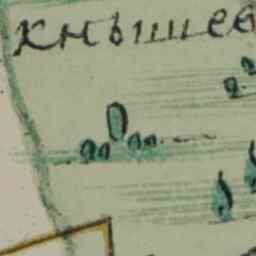 кнышев